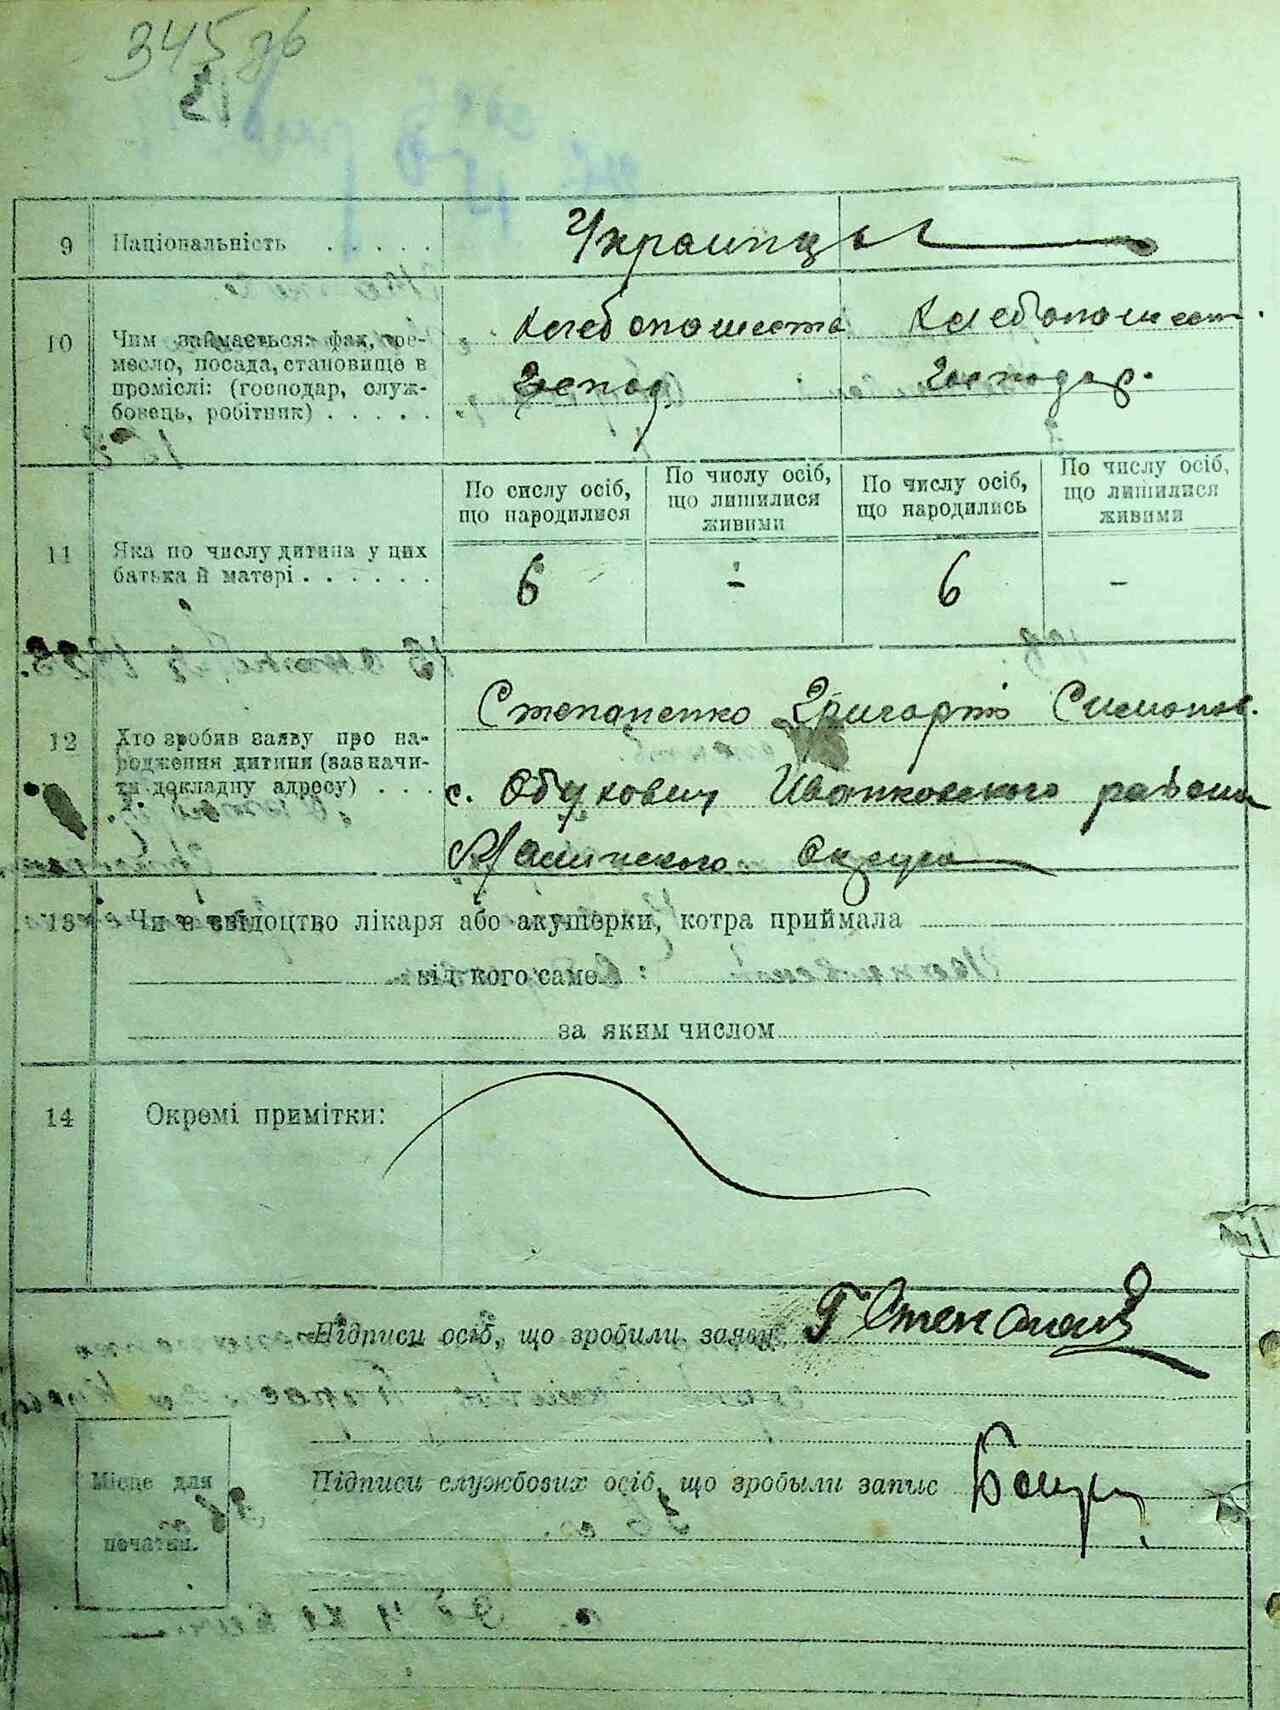 345 зв
9 Національність . . . . . Украинцы
10 Чим займається: фах, ре-
месло, посада, становище в
проміслі: (господар, служ-
бовець, робітник) . . . . .
Хлебопашество Хлебопашест.
Господ. Господар.
11 Яка по числу дитина у цих
батька й матері . . . . . .
По сислу осіб,
що народилися
По числу осіб,
що лишилися
живими
По числу осіб,
що народились
По числу осіб,
що лишилися
живими
6 - 6 -
12 Хто зробив заяву про на-
родження дитини (зазначи-
ти докладну адресу) . . .
Степаненко Григорий Симонов.
с. Обуховичи Иванковского района
Малинского округа
13 Чи є свідоцтво лікаря або акушерки, котра приймала
від кого саме
за яким числом
14 Окремі примітки:
Підписи осіб, що зробили заяву Г Степанен
Підписи службових осіб, що зробыли запис
Місце для
печатки.